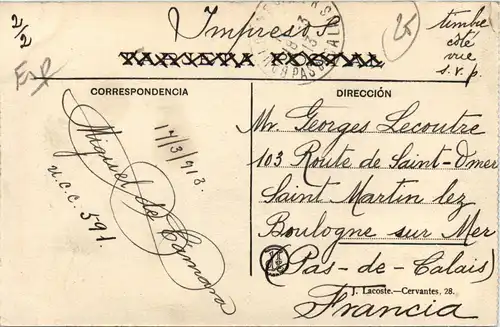 2/2
Impresos
25
timbre
côté
vue
s.v.p.
Esp
TARJETA POSTAL
CORRESPONDENCIA
DIRECCIÓN
17/3/913.
Miguel de Cámara
u.c.c. 591.
Mr. Georges Lecoutre
103 Route de Saint-Omer
Saint Martin lez
Boulogne sur Mer
(Pas-de-Calais)
J. Lacoste.—Cervantes, 28.
Francia